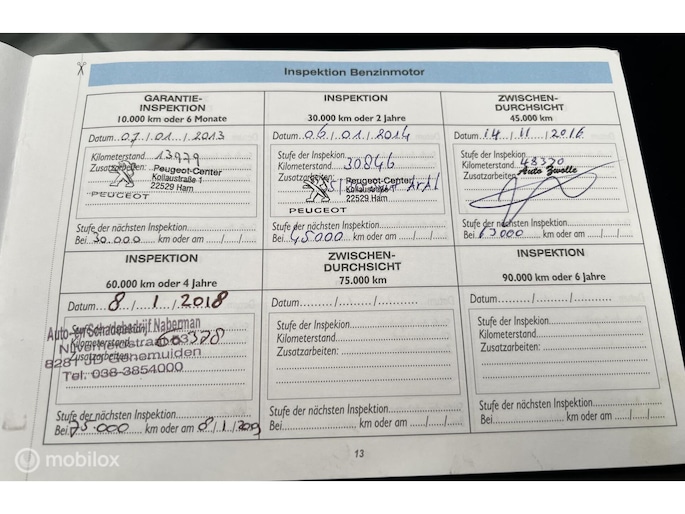 Inspektion Benzinmotor
GARANTIE-
INSPEKTION
10.000 km oder 6 Monate
Datum 07/01/2013
Kilometerstand 13979
Zusatzarbeiten:
Peugeot-Center
Kollaustraße 1
22529 Ham
PEUGEOT
Stufe der nächsten Inspektion
Bei 30.000 km oder am ..../..../....
INSPEKTION
30.000 km oder 2 Jahre
Datum 06/01/2014
Stufe der Inspekion
Kilometerstand 30846
Zusatzarbeiten:
Peugeot-Center
Kollaustraße 1
22529 Ham
PEUGEOT
Stufe der nächsten Inspektion
Bei 45000 km oder am ..../..../....
ZWISCHEN-
DURCHSICHT
45.000 km
Datum 14/11/2016
Stufe der Inspekion
Kilometerstand 48370
Zusatzarbeiten:
Auto Zwolle
Stufe der nächsten Inspektion
Bei km oder am ..../..../....
INSPEKTION
60.000 km oder 4 Jahre
Datum 8/1/2018
Auto- en Schadebedrijf Naberman
Kilometerstand
Zusatzarbeiten:
Nijverheidstraat
8281 JD Genemuiden
Tel. 038-3854000
Stufe der nächsten Inspektion
Bei 75.000 km oder am 8/1/2019
ZWISCHEN-
DURCHSICHT
75.000 km
Datum ..../..../....
Stufe der Inspekion
Kilometerstand
Zusatzarbeiten:
Stufe der nächsten Inspektion
Bei km oder am ..../..../....
INSPEKTION
90.000 km oder 6 Jahre
Datum ..../..../....
Stufe der Inspekion
Kilometerstand
Zusatzarbeiten:
Stufe der nächsten Inspektion
Bei km oder am ..../..../....
13
mobilox